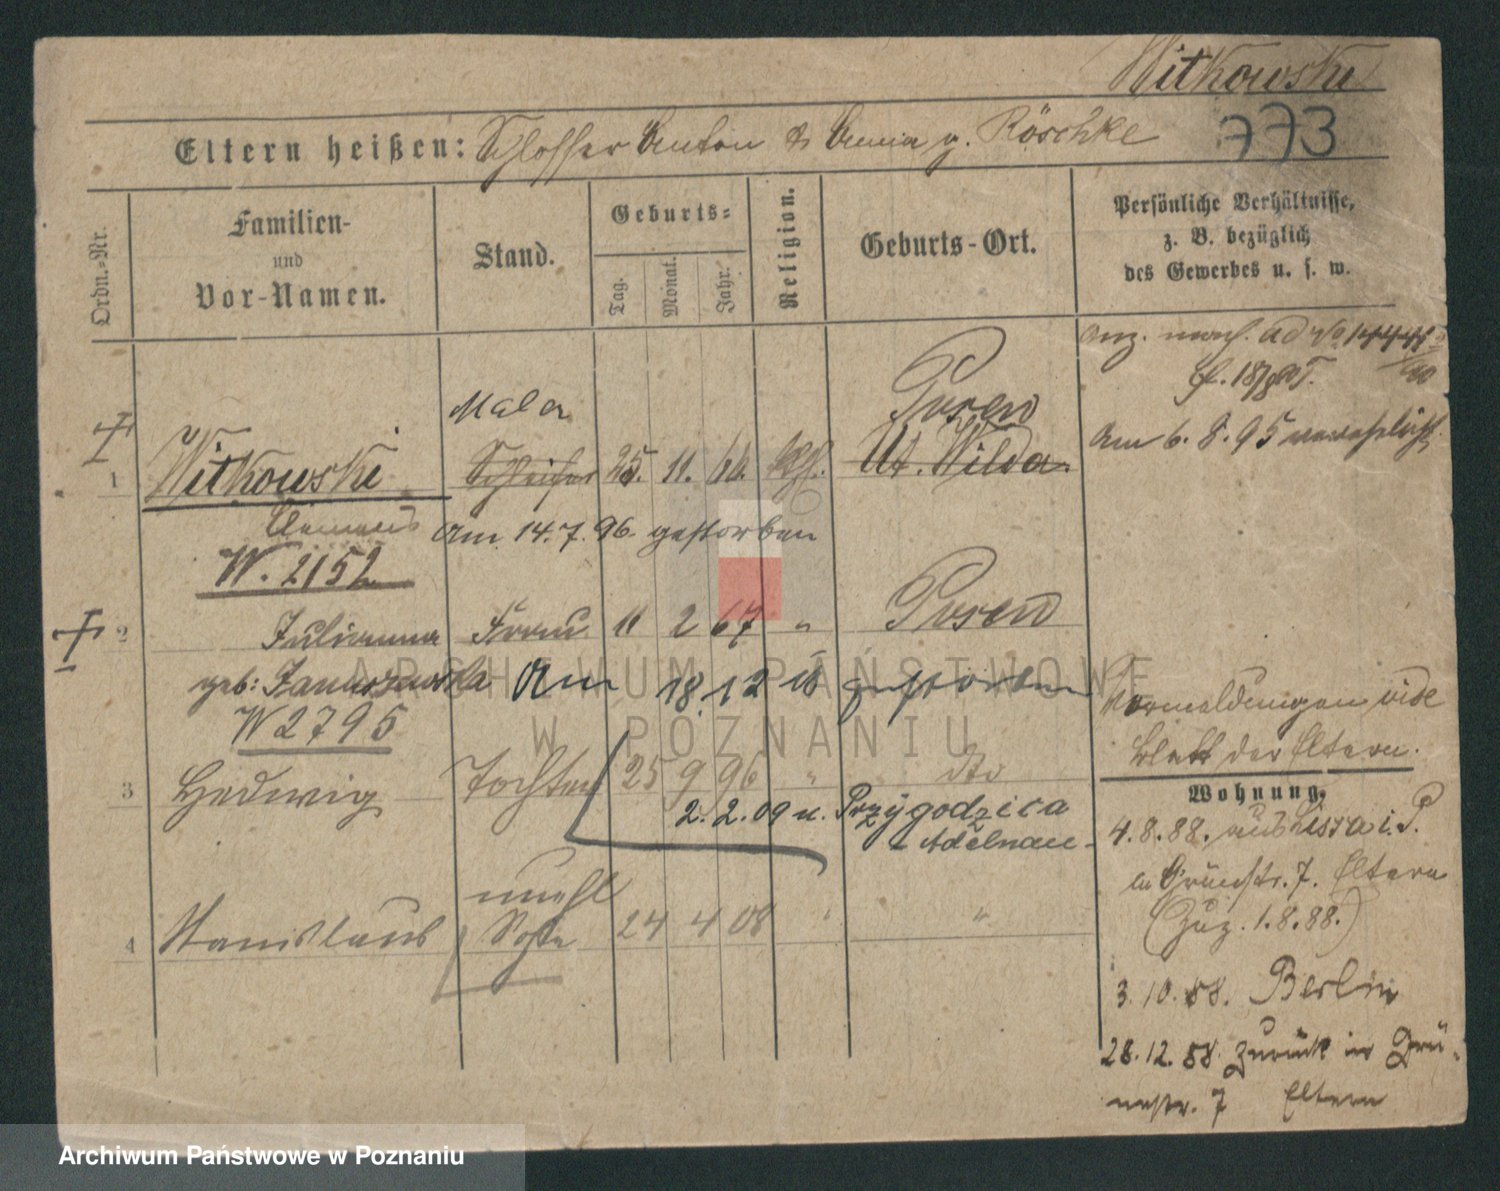 Witkowski
773
Eltern heißen: Schlosser Anton & Anna g. Röschke
Ordn.-Nr.
Familien-
und
Vor-Namen.
Stand.
Geburts-
Tag.
Monat.
Jahr.
Religion.
Geburts-Ort.
Persönliche Verhältnisse,
z. B. bezüglich
des Gewerbes u. s. w.
Am 6.8.95 verehelicht.
Maler
Posen
1 Witkowski Schleifer 25. 11. 66. kth. Ut. Wilda
Clemens
Am 14.7.96 gestorben
W. 2152
2 Julianna Frau 11 2 67 " Posen
geb: Januszewska Am 18.12 18 gestorben
W 2795
Vermeldungen vide
Blatt der Eltern.
3 Hedwig Tochter 25 9 96 " dto
2.2.09 n. Przygodzica
Adelnau
unehl
4 Stanislaus Sohn 24 4 08 " "
Wohnung.
4.8.88. aus Lissa i. P.
in Grünstr. 7. Eltern
(Zuz. 1.8.88.)
3.10.88. Berlin
28.12.88. zurück in Grü-
nestr. 7 Eltern
ARCHIWUM PAŃSTWOWE
W POZNANIU
Archiwum Państwowe w Poznaniu